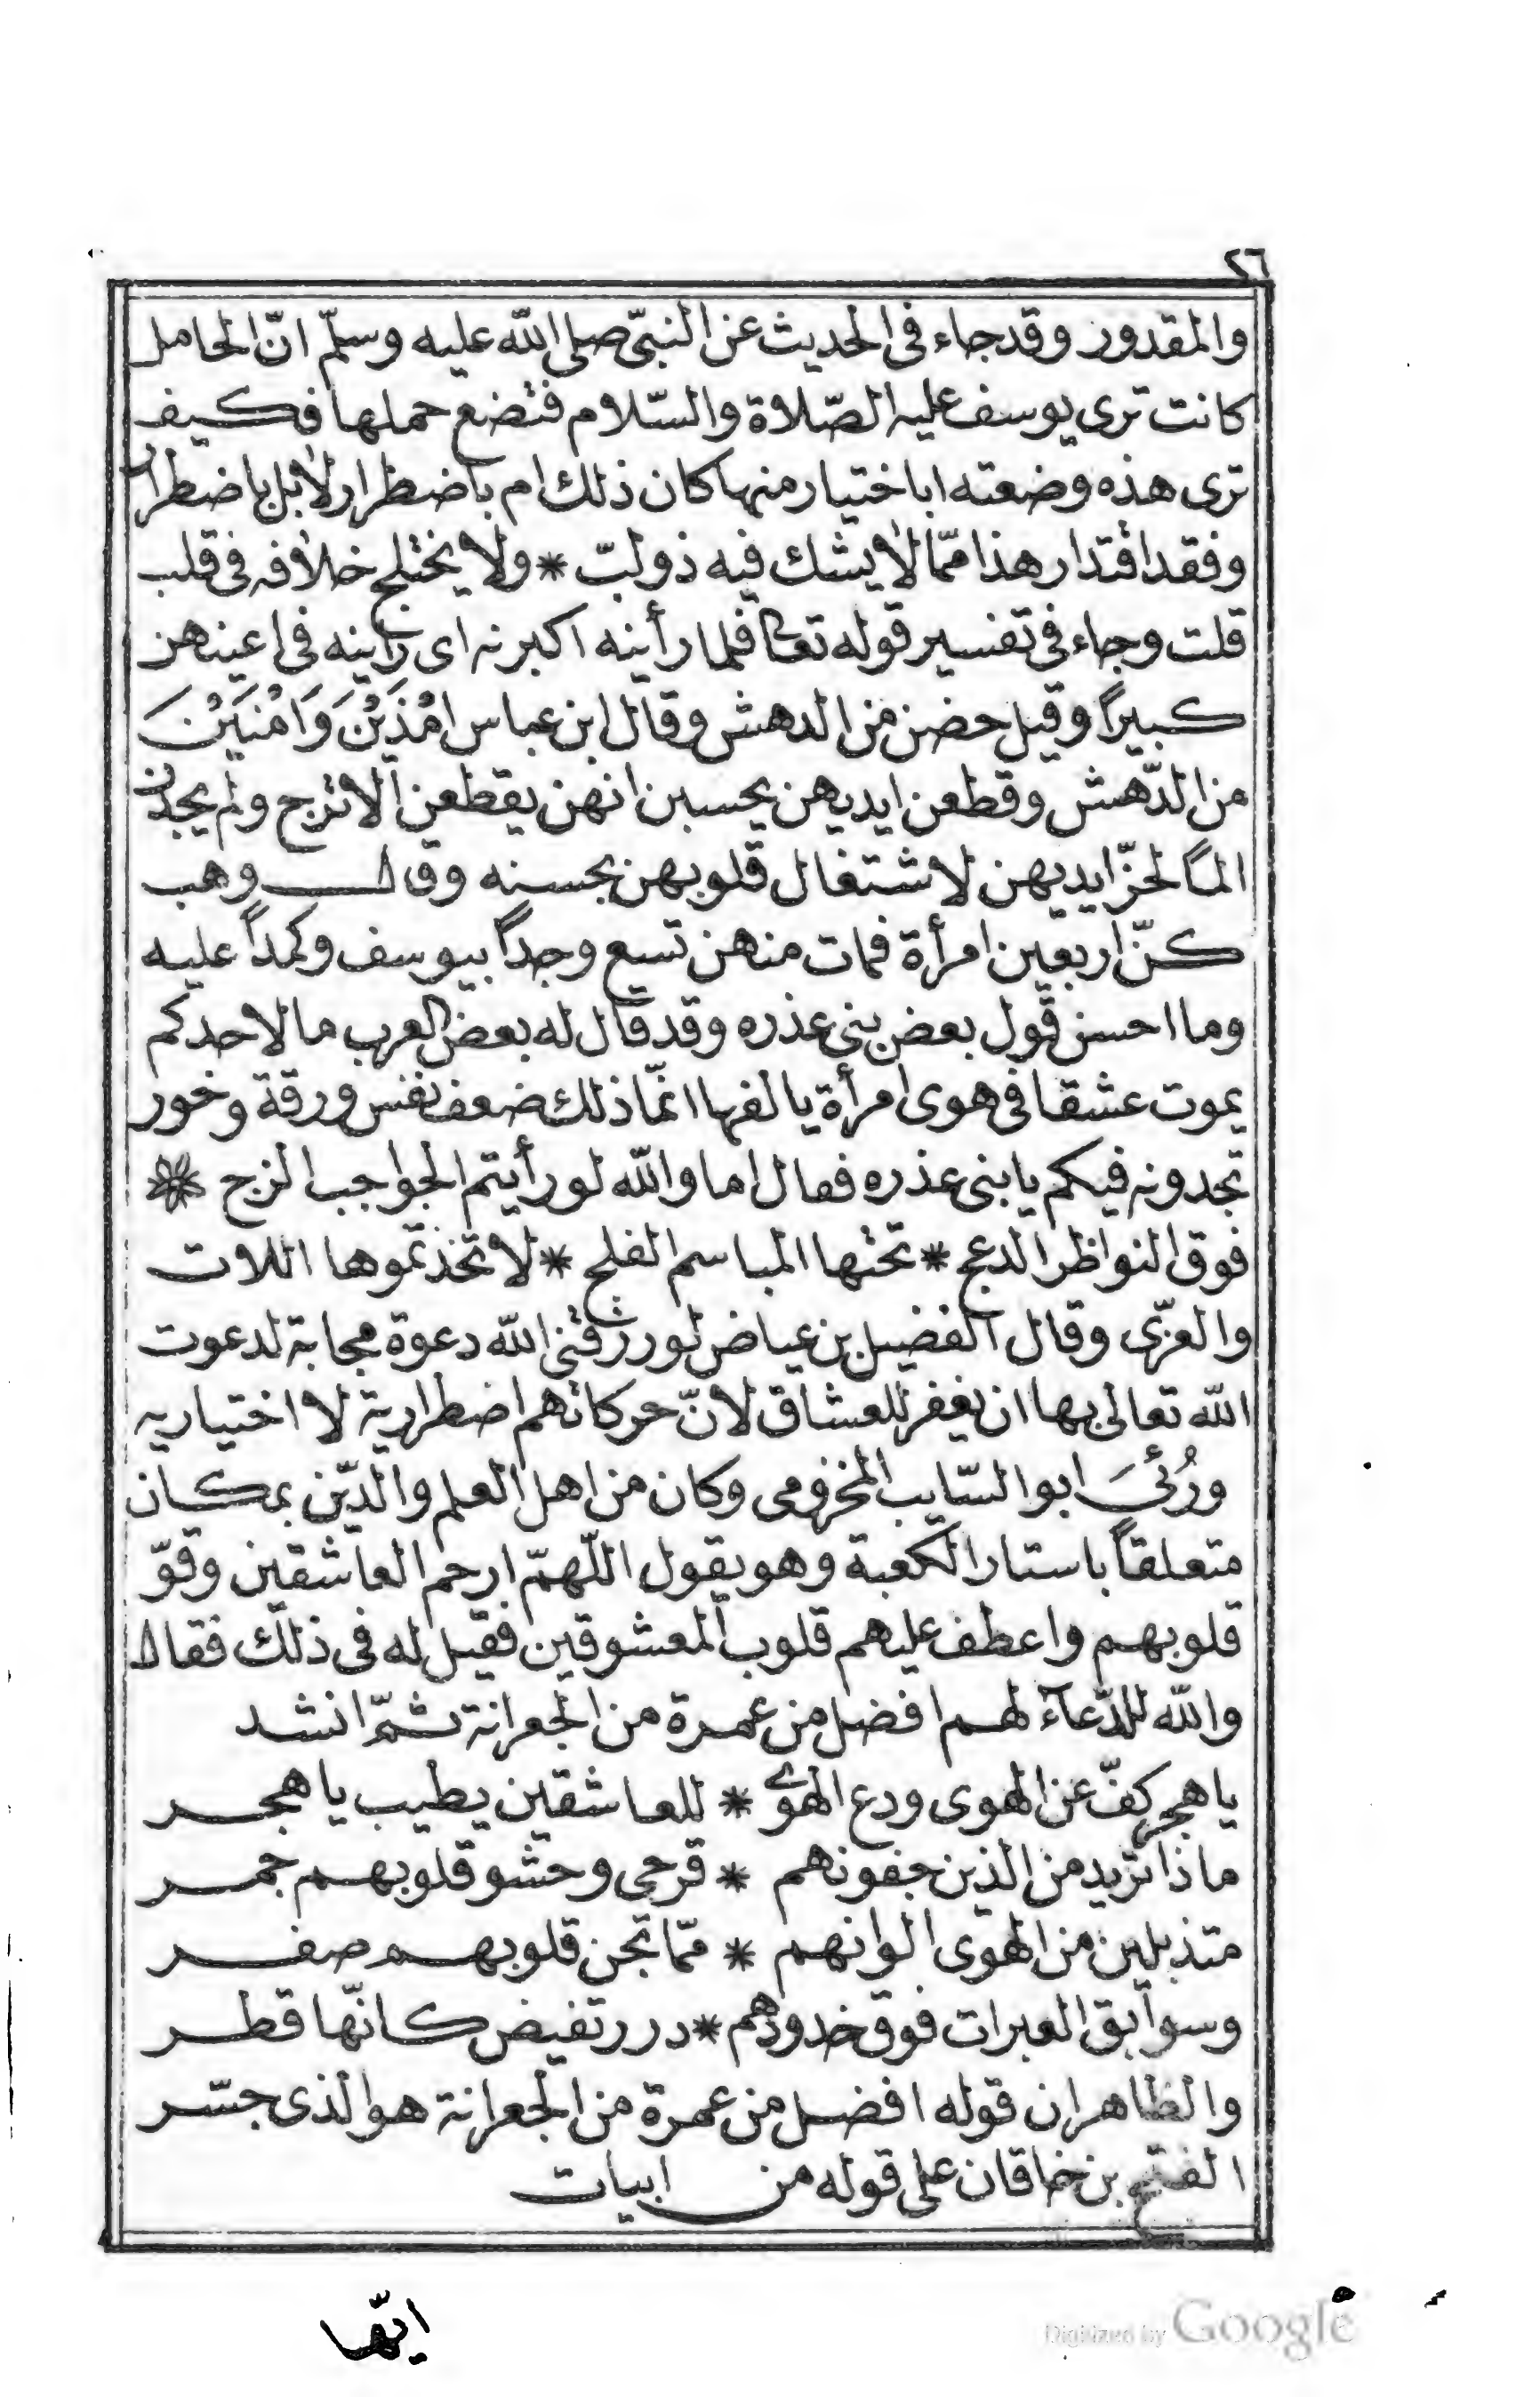 ٢٦
والمقدور وقد جاء فى الحديث عن النبىّ صلى الله عليه وسلّم انّ الحامل
كانت ترى يوسف عليه الصّلاة والسّلام فتضع حملها فكيف
ترى هذه وضعته اباختيار منها كان ذلك ام باضطرار لا بل باضطرار
وفقد اقتدار هذا ممّا لا يشك فيه ذو لبّ * ولا يختلج خلافه فى قلب
قلت وجاء فى تفسير قوله تعا فلما رأينه اكبرنه اى رأينه فى اعينهن
كبيراً وقيل حضن من الدهش وقال ابن عباس امْذَيْنَ وَامْنَيْنَ
من الدّهش وقطعن ايديهن يحسبن انهن يقطعن الاترج ولم يجدن
الماً لحزّ ايديهن لاشتغال قلوبهن بحسنه وقال وهب
كنّ اربعين امرأة فمات منهن تسع وجداً بيوسف وكمداً عليه
وما احسن قول بعض بنى عذره وقد قال له بعض العرب ما لاحدكم
يموت عشقا فى هوى امرأة يالفها انمّا ذلك ضعف نفس ورقة وخور
تجدونه فيكم يا بنى عذره فقال اما والله لو رأيتم الحواجب الزج *
فوق النواظر الدعج * تحتها المباسم الفلج * لاتخذتموها اللات
والعزّى وقال الفضيل بن عياض لو رزقنى الله دعوة مجابة لدعوت
الله تعالى بها ان يغفر للعشاق لانّ حركاتهم اضطرارية لا اختياريه
ورُئىَ ابو السّايب المخزومى وكان من اهل العلم والدّين بمكان
متعلقاً باستار الكعبة وهو يقول اللّهمّ ارحم العاشقين وقوّ
قلوبهم واعطف عليهم قلوب المعشوقين فقيل له فى ذلك فقال
والله للدّعآء لهم افضل من عمرة من الجعرانة ثمّ انشد
يا هجر كفّ عن الهوى ودع الهوى * للعاشقين يطيب يا هجر
ماذا تريد من الذين جفونهم * قرحى وحشو قلوبهم جمر
متذبلين من الهوى الوانهم * ممّا تجن قلوبهم صفر
وسوابق العبرات فوق خدودهم * درر تفيض كانّها قطر
والظاهر ان قوله افضل من عمرة من الجعرانة هو الذى جسّر
الفتح بن خاقان على قوله من ابيات
ايّها
Digitized by Google